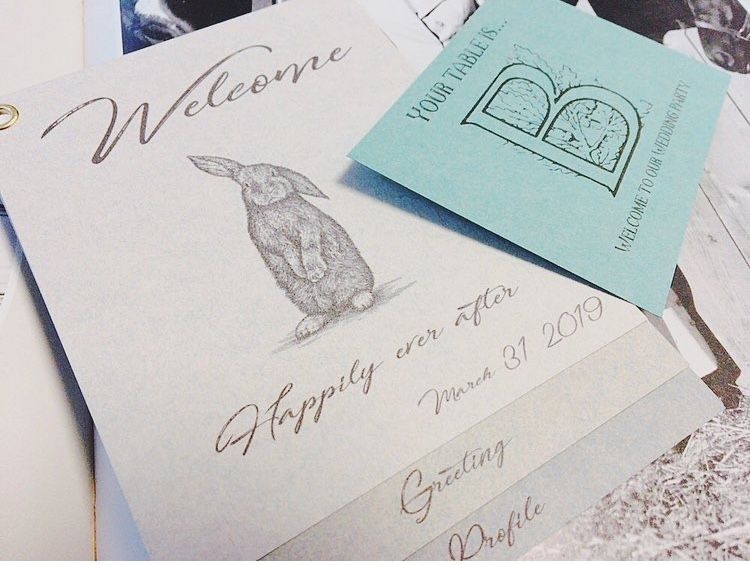 Welcome
Happily ever after
March 31 2019
Greeting
Profile
YOUR TABLE IS...
B
WELCOME TO OUR WEDDING PARTY